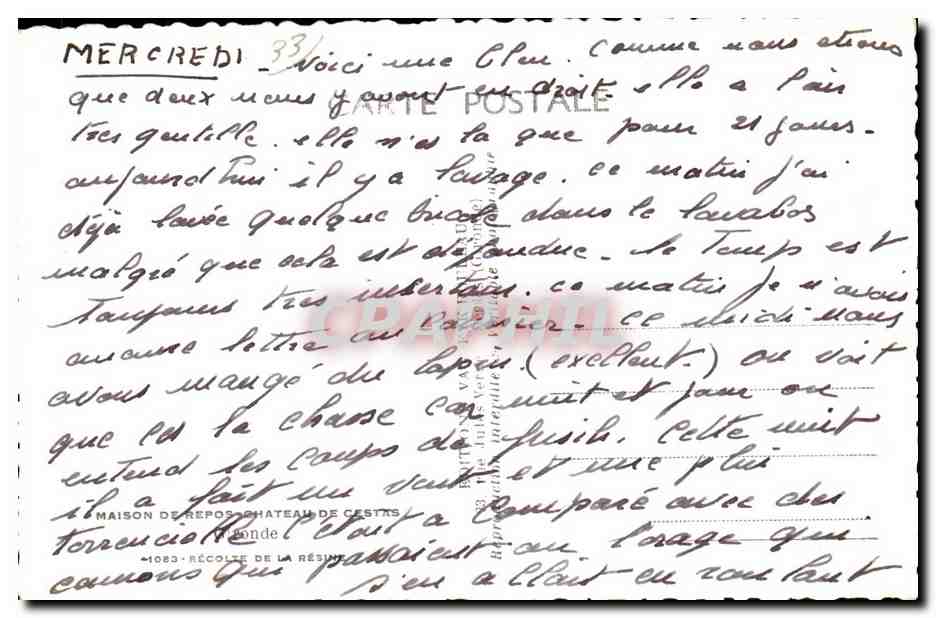 MERCREDI 33/
- Voici une bleu. Comme nous étions
que deux nous y avont en droit. elle a l'air
CARTE POSTALE
tres gentille. elle n'es la que pour 21 jours.
aujourd'hui il y a lavage. ce matin j'ai
déjà lavée quelque bricole dans le lavabos
malgré que cela est defendue. le temps est
toujours tres incertain. ce matin je n'avois
aucune lettre au courrier. ce midi nous
avons mangé du lapin. (excellent.) on voit
que c'es la chasse car nuit et jour on
entend les coups de fusils. Cette nuit
il a fait un vent et une pluie
MAISON DE REPOS CHATEAU DE CESTAS
torrencielle c'étoit a comparé avec des
Gironde
1083 - RÉCOLTE DE LA RÉSINE
camions qui passaient ou l'orage qui
s'en allait en roulant
CPAPHIL
Reproduction interdite